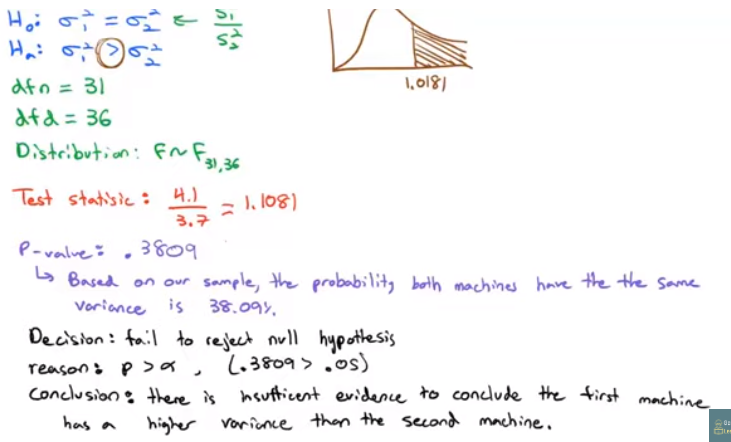 H₀: σ₁² = σ₂² ← S₁²/S₂²
Hₐ: σ₁² > σ₂²
1.0181
dfn = 31
dfd = 36
Distribution: F~F₃₁,₃₆
Test statisic: 4.1/3.7 = 1.1081
P-value: .3809
↳ Based on our sample, the probability both machines have the the same
variance is 38.09%.
Decision: fail to reject null hypothesis
reason: p > α, (.3809 > .05)
Conclusion: there is insufficent evidence to conclude the first machine
has a higher variance than the second machine.